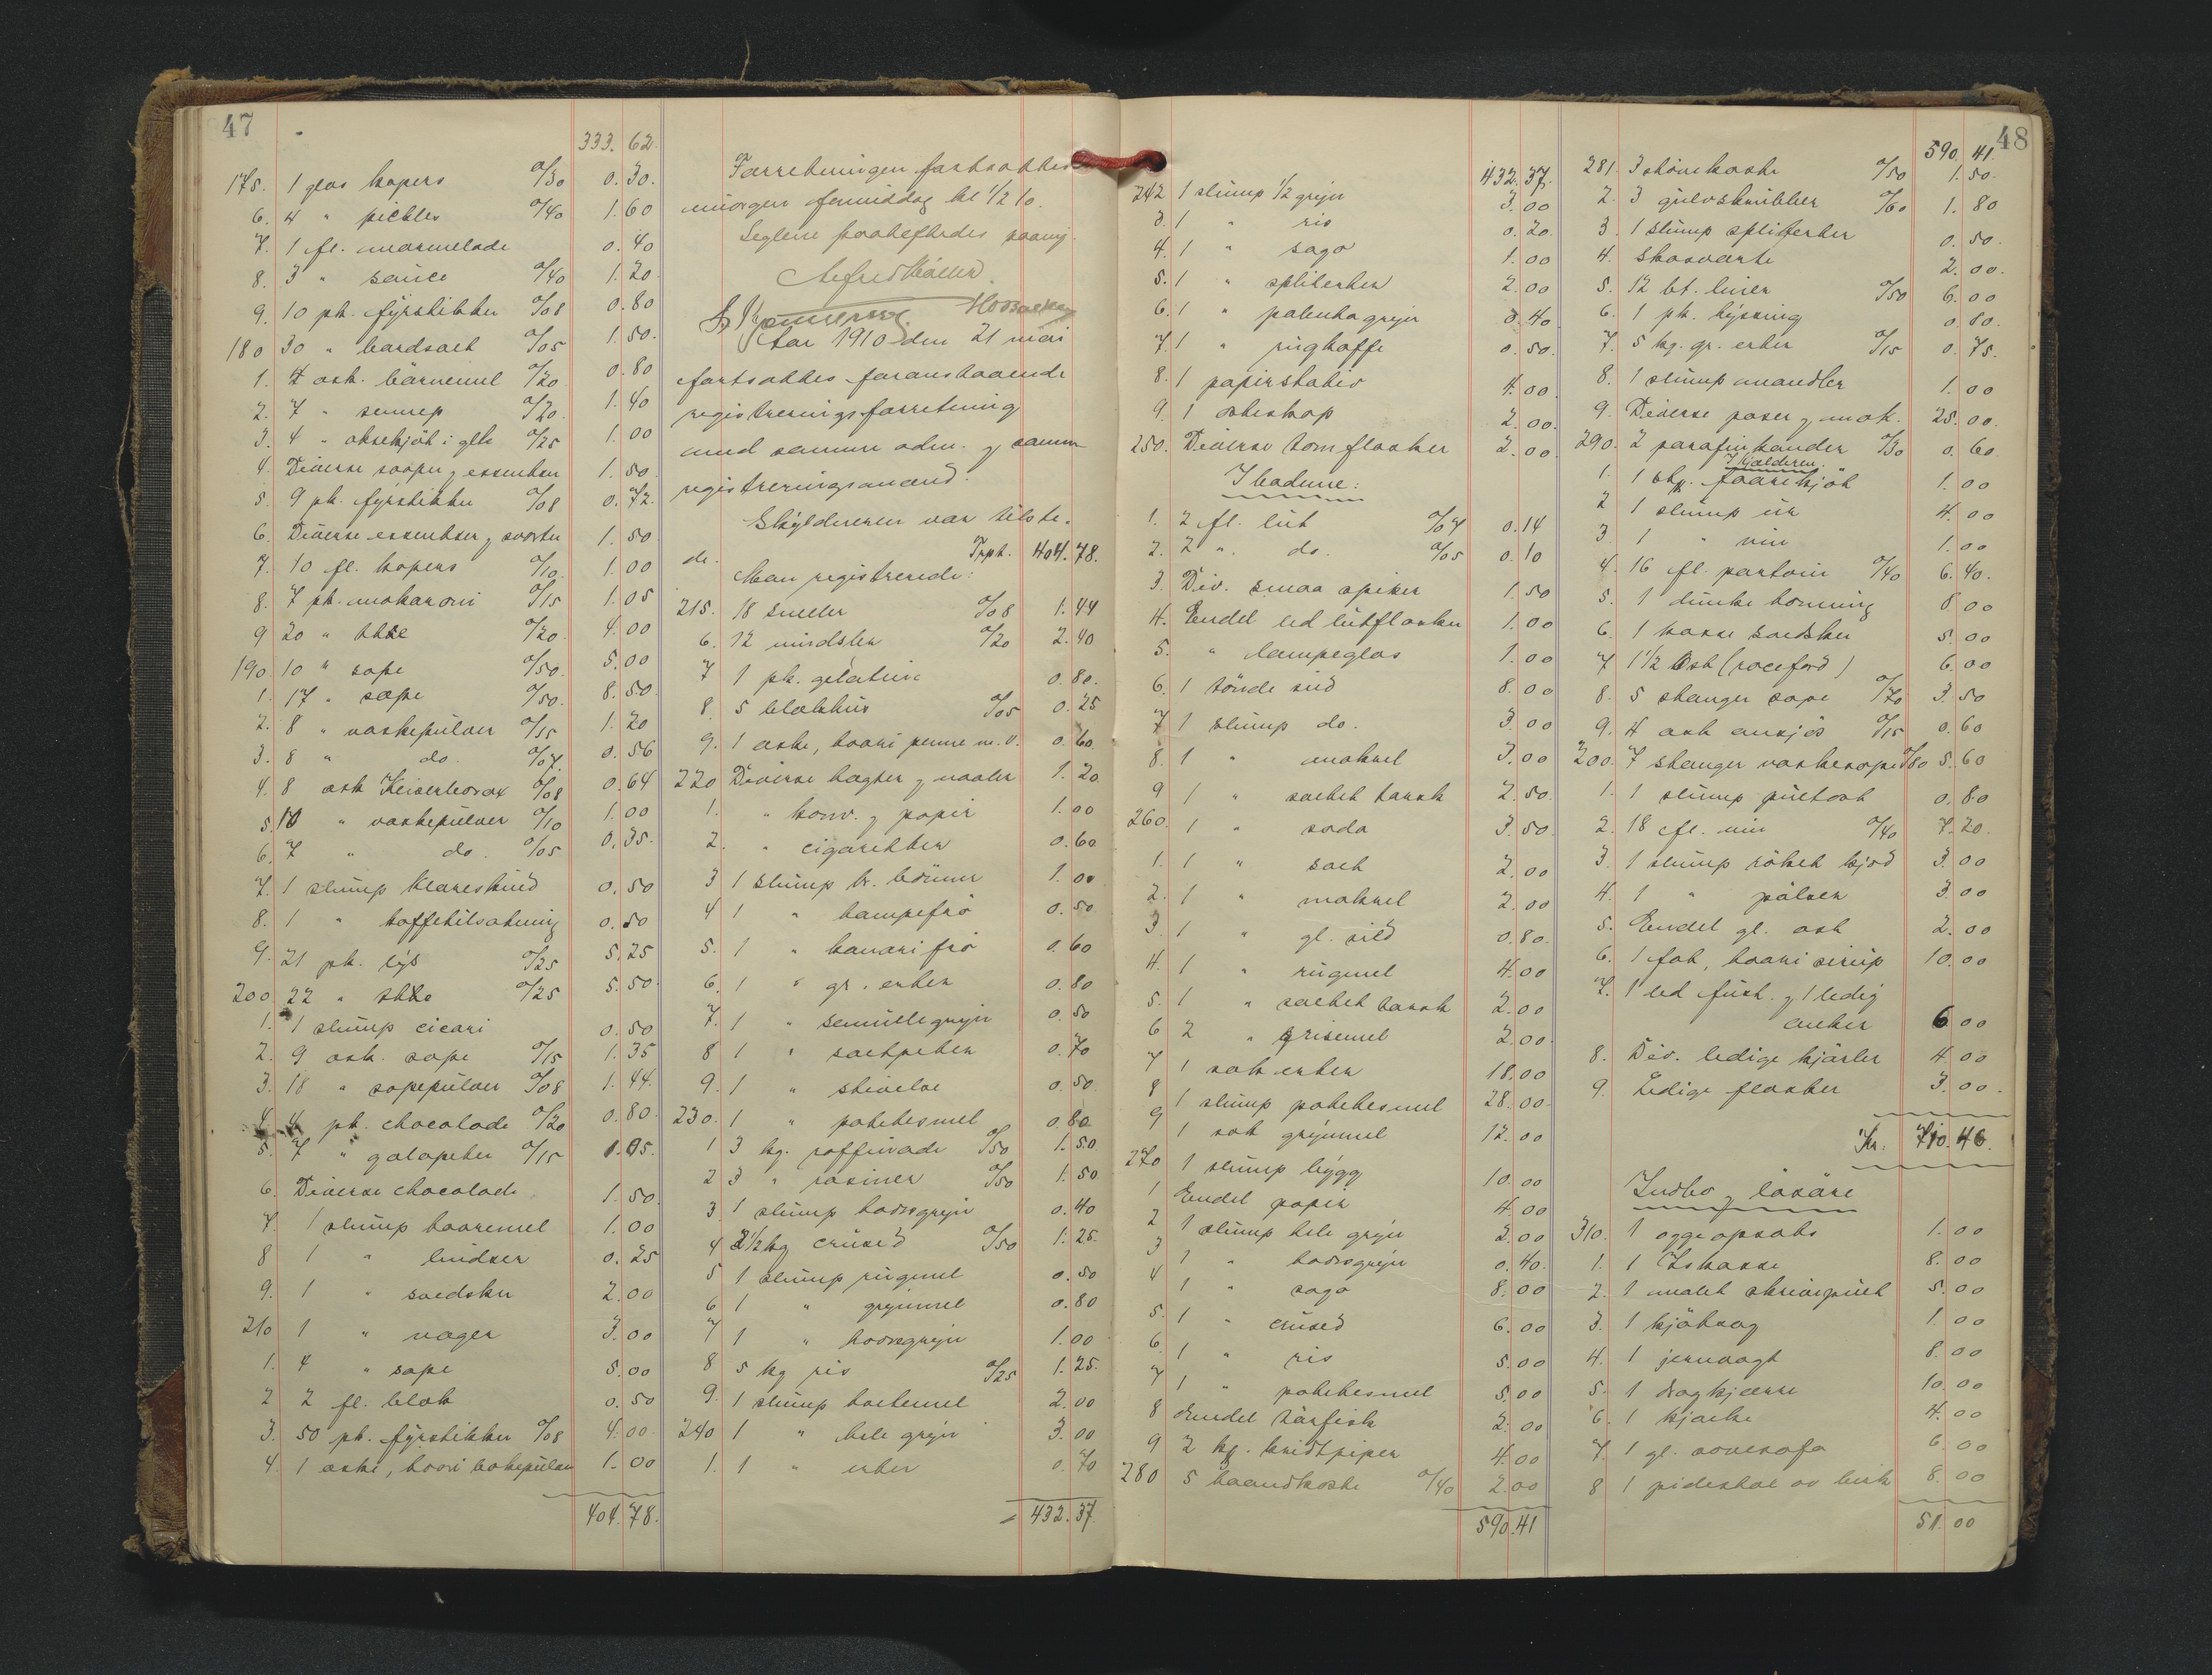 47
333. 62.
175. 1 glas kapers a/30 0. 30.
6. 4 " pickles a/40 1. 60
7. 1 fl. marmelade 0. 40
8. 3 " sauce a/40 1. 20
9. 10 pk. fyrstikker a/08 0. 80
180 30 " bordsalt a/05 1. 50.
1. 4 ask. barnemel a/20 0. 80
2. 7 " sennep a/20. 1. 40
3. 4 " oksekjöt i gele a/25 1. 00
4. Diverse saaper og essentser 1. 50.
5. 9 pk. fyrstikker a/08 0. 72.
6. Diverse essentser og sværter 1. 50
7. 10 fl. kapers a/10. 1. 00
8. 7 pk. makaroni a/15 1. 05
9 20 " a/20. 4. 00
190 10 " sape a/50. 5. 00
1. 17 " sæpe a/50. 8. 50
2. 8 " vaskepulver a/15 1. 20
3. 8 " do. a/07. 0. 56
4. 8 ask Keiserborax a/08 0. 64
5. 10 " vaskepulver a/10 1. 00
6. 7 " do. a/05 0. 35.
7. 1 slump Klareskind 0. 50
8. 1 " kaffetilsætning 0. 50
9. 21 pk. lys a/25 5. 25
200 22 " a/25 5. 50
1. 1 slump cicori 0. 50
2. 9 ask. sape a/15 1. 35
3. 18 " sapepulver a/08 1. 44.
4. 4 pk. chocolade a/20 0. 80.
5. 7 " galopeter a/15 1. 05.
6. Diverse chocolade 1. 50
7. 1 slump havremel 1. 00
8 1 " lindser 0. 25
9. 1 " svedsker 2. 00
210 1 " vager 3. 00
1. 4 " sape 5. 00
2 2 fl. blæk 0. 50
3. 50 pk. fyrstikker a/08 4. 00
4. 1 æske, hvori bakepulver 1. 00
404. 78.
Forretningen fortsættes
morgen formiddag kl 1/2 10.
Seglene paaheftedes paany.
Alfred Møller
Aar 1910 den 21 mai
fortsattes foranstaaende
registreringsforretning
med samme adm. og samme
registreringsmænd.
Skyldneren var tilste-
de. Trpt. 404. 78.
Man registrerede:
215. 18 sneller a/08 1. 44
6. 12 a/20 2. 40
7 1 pk. gelatine 0. 80.
8. 5 blækhus a/05 0. 25
9. 1 æske, hvori penne m. v. 0. 60
220 Diverse hægter og naaler 1. 20
1. " konv. og papir 1. 00
2. " cigaretter 0. 60
3 1 slump br. bönner 1. 00
4 1 " hampefrö 0. 50
5. 1 " kanarifrö 0. 60
6. 1 " gr. erter 0. 80
7. 1 " semulegryn 0. 50
8 1 " saltpeter 0. 70
9. 1 " stivelse 0. 50
230. 1 " potetesmel 0. 80
1 3 kg. raffinade a/50 1. 50
2 3 " rosiner a/50 1. 50
3 1 slump havregryn 0. 40
4 2 1/2 kg crused a/50 1. 25
5 1 slump rugmel 0. 50
6 1 " grynmel 0. 80
7 1 " havregryn 1. 00
8 5 kg ris a/25 1. 25.
9. 1 slump hvetemel 2. 00
240 1 " hele gryn 3. 00
1. 1 " erter 0. 70
432. 37.
432. 37.
242 1 slump 1/2 gryn 3. 00
3. 1 " ris 0. 20.
4. 1 " sago 1. 00
5. 1 " spliterter 2. 00
6. 1 " polentagryn 0. 40.
7. 1 " rugkaffe 0. 50.
8. 1 papirstativ 4. 00
9. 1 osteskap 2. 00.
250. Diverse tomflasker 2. 00
I boderne:
1. 2 fl. lut a/07 0. 14
2. 2 " do. a/05 0. 10
3. Div. smaa spiker 1. 50
4. Endel led lutflasker 1. 00
5. " lampeglas 1. 00
6. 1 tönde sild 8. 00
7 1 slump do. 3 00
8. 1 " makrel 3. 00
9 1 " saltet torsk 2. 50
260. 1 " soda 3. 50
1. 1 " salt 2. 00
2. 1 " makrel 2. 00
3. 1 " gl. sild 0. 80.
4. 1 " rugmel 4. 00
5. 1 " saltet torsk 2. 00
6 2 " grisemel 2. 00
7 1 sæk erter 18. 00
8 1 slump potetesmel 28. 00
9 1 sæk grynmel 12. 00
270 1 slump bygg 10. 00
1 Endel papir 4. 00
2 1 slump hele gryn 2. 00
3 1 " havregryn 0. 40.
4 1 " sago 8. 00
5. 1 " crused 6. 00
6. 1 " ris 5. 00
7 1 " potetesmel 5. 00
8 Endel törfisk 2. 00
9 2 kg. kridtpiper 4. 00
280 5 haandkoste a/40 2. 00
590. 41
48
590. 41.
281. 3 stövekoste a/50 1. 50.
2. 3 gulvskrubber a/60 1. 80
3. 1 slump spliterter 0. 50
4. Skosværte 2. 00.
5. 12 bt. liner a/50 6. 00
6. 1 pk. lysning 0. 80.
7. 5 kg. gr. erter a/15 0. 75.
8. 1 slump mandler 1. 00
9. Diverse poser og mak. 25. 00.
290. 2 parafinkander a/30 0. 60
I kjælderen.
1. 1 stk. faarekjöt 1. 00
2 1 slump ur 4. 00
3. 1 " vin 1. 00
4. 16 fl. portvin a/40 6. 40.
5. 1 dunke honning 8 00
6. 1 kasse svedsker 5. 00
7 1 1/2 Ost (roceford) 6. 00
8. 5 stanger sape a/70 3. 50
9. 4 ask ansjos a/15 0. 60
300. 7 stanger vaskesape a/80 5. 60
1. 1 slump pultost 0. 80
2. 18 fl. vin a/40 7. 20.
3. 1 slump röket kjöd 3. 00
4. 1 " pölser 3. 00
5. Endel gl. ost 2. 00
6. 1 fat, hvori sirup 10. 00
7. 1 led fust. og 1 ledig
anker 6 00
8. Div. ledige kjörler 4. 00
9. Ledige flasker 3. 00.
Kr. 710. 46.
Indbo og lösöre
310. 1 1. 00
1. 1 Iskasse 8. 00
2. 1 malet skrivepult 5. 00
3. 1 kjötsag 1. 00
4. 1 jernvægt 8. 00
5. 1 dragkjærre 10. 00
6. 1 kjælke 4. 00
7. 1 gl. sovesofa 6. 00
8 1 pidestal av birk 8. 00
51. 00